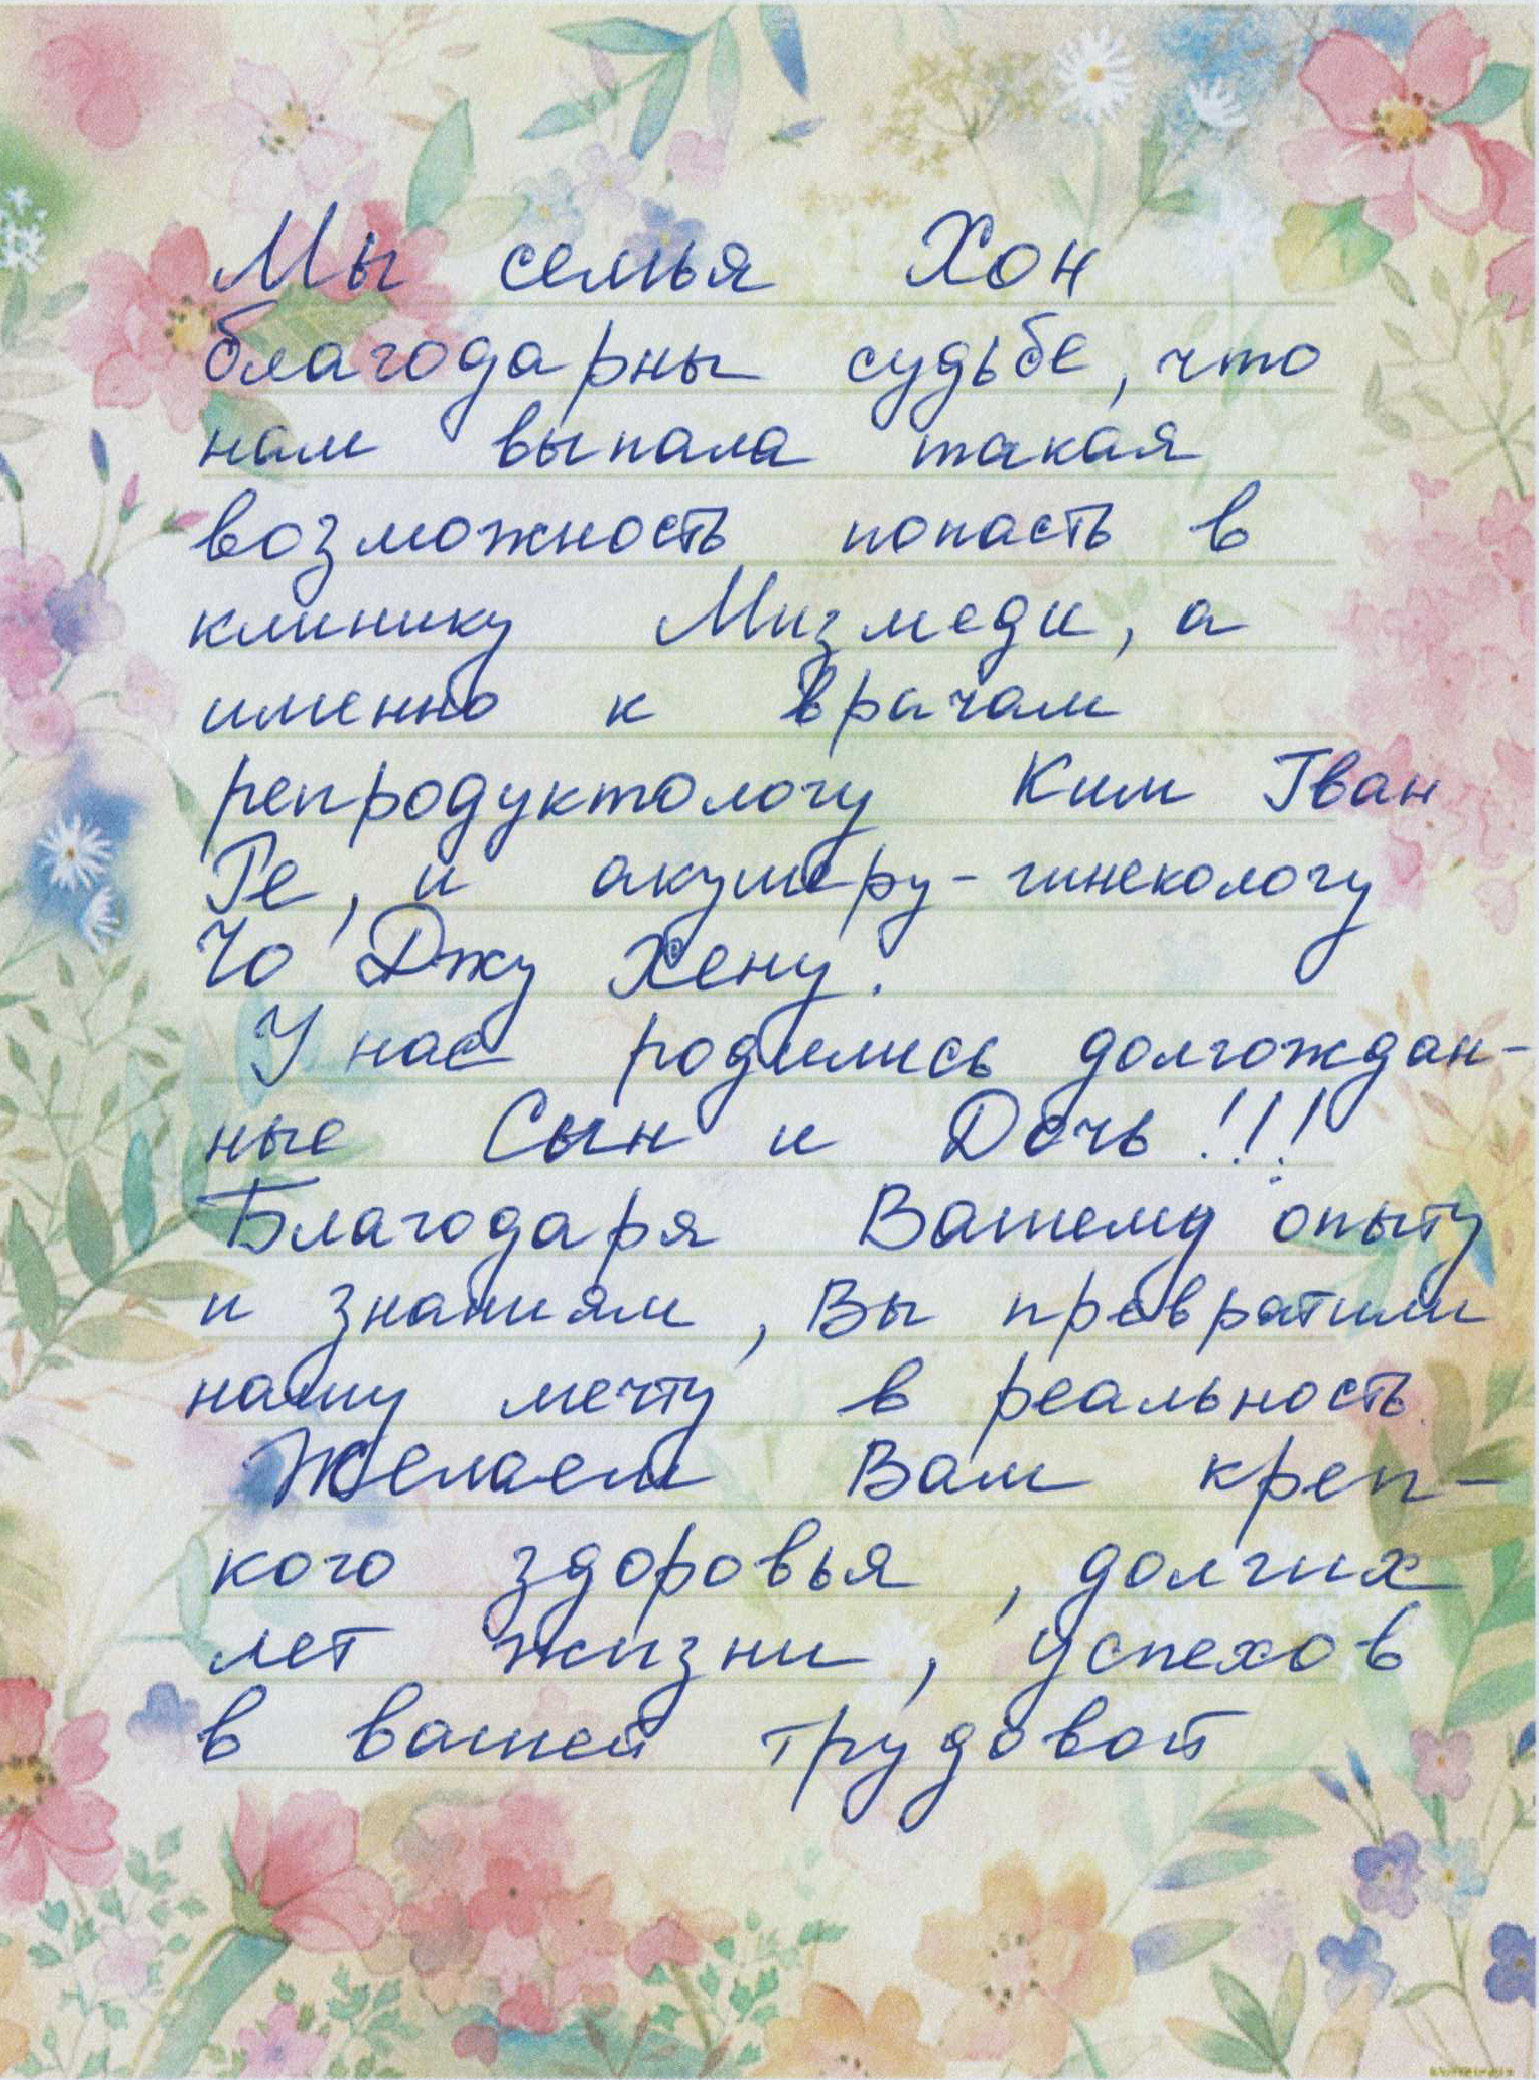 Мы семья Хон
благодарны судьбе, что
нам выпала такая
возможность попасть в
клинику Мизмеди, а
именно к врачам
репродуктологу Ким Гван
Ге, и акушеру-гинекологу
Чо Джу Хену.
У нас родились долгождан-
ные Сын и Дочь!!!
Благодаря Вашему опыту
и знаниям, Вы превратили
нашу мечту в реальность.
Желаем Вам креп-
кого здоровья, долгих
лет жизни, успехов
в вашей трудовой